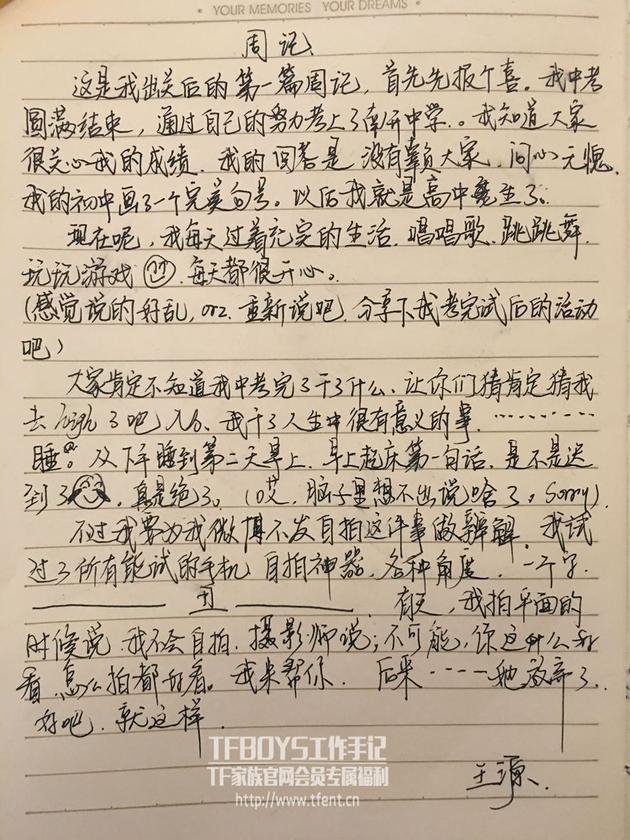 YOUR MEMORIES YOUR DREAMS
周记
这是我出关后的第一篇周记，首先先报个喜。我中考
圆满结束，通过自己的努力考上了南开中学。。我知道大家
很关心我的成绩．我的回答是 没有辜负大家．问心无愧．
我的初中画了一个完美句号。以后我就是高中魔生了。
现在呢，我每天过着充实的生活．唱唱歌、跳跳舞．
玩玩游戏 每天都很开心。
(感觉说的好乱，orz．重新说吧．分享下我考完试后的活动
吧)
大家肯定不知道我中考完了干了什么．让你们猜肯定猜我
去 high 了吧 No．我干了人生中很有意义的事．………
睡。从下午睡到第二天早上．早上起床第一句话．是不是迟
到了．真是绝了。(哎．脑子里想不出说啥了。Sorry)．
不过我要为我微博不发自拍这件事做辩解．我试
过了所有能试的手机．自拍神器．各种角度．一个字．
丑 有天，我拍平面的
时候说．我不会自拍．摄影师说；不可能，你这什么好
看．怎么拍都好看。我来帮你． 后来····她放弃了．
好吧．就这样．
王源．
TFBOYS工作手记
TF家族官网会员专属福利
http://www.tfent.cn